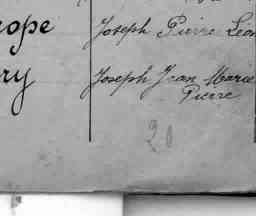 rope Joseph Pierre Léon
ry Joseph Jean Marie
Pierre
20